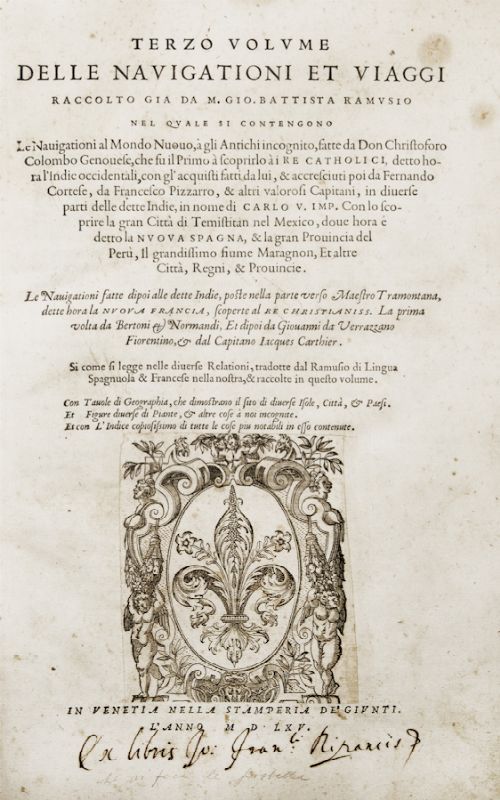 TERZO VOLVME
DELLE NAVIGATIONI ET VIAGGI
RACCOLTO GIA DA M. GIO. BATTISTA RAMVSIO
NEL QVALE SI CONTENGONO
Le Nauigationi al Mondo Nuouo, à gli Antichi incognito, fatte da Don Christoforo
Colombo Genouese, che fu il Primo à scoprirlo à i RE CATHOLICI, detto ho
ra l'Indie occidentali, con gl'acquisti fatti da lui, & accresciuti poi da Fernando
Cortese, da Francesco Pizzarro, & altri valorosi Capitani, in diuerse
parti delle dette Indie, in nome di CARLO V. IMP. Con lo sco-
prire la gran Città di Temistitan nel Mexico, doue hora è
detto la NVOVA SPAGNA, & la gran Prouincia del
Perù, Il grandissimo fiume Maragnon, Et altre
Città, Regni, & Prouincie.
Le Nauigationi fatte dipoi alle dette Indie, poste nella parte verso Maestro Tramontana,
dette hora la NVOVA FRANCIA, scoperte al RE CHRISTIANISS. La prima
volta da Bertoni & Normandi, Et dipoi da Giouanni da Verrazzano
Fiorentino, & dal Capitano Iacques Carthier.
Si come si legge nelle diuerse Relationi, tradotte dal Ramusio di Lingua
Spagnuola & Francese nella nostra, & raccolte in questo volume.
Con Tauole di Geographia, che dimostrano il sito di diuerse Isole, Città, & Paesi.
Et Figure diuerse di Piante, & altre cose à noi incognite.
Et con L'Indice copiosissimo di tutte le cose piu notabili in esso contenute.
IN VENETIA NELLA STAMPERIA DE' GIVNTI.
L'ANNO M D LXV.
Ex libris Jo: